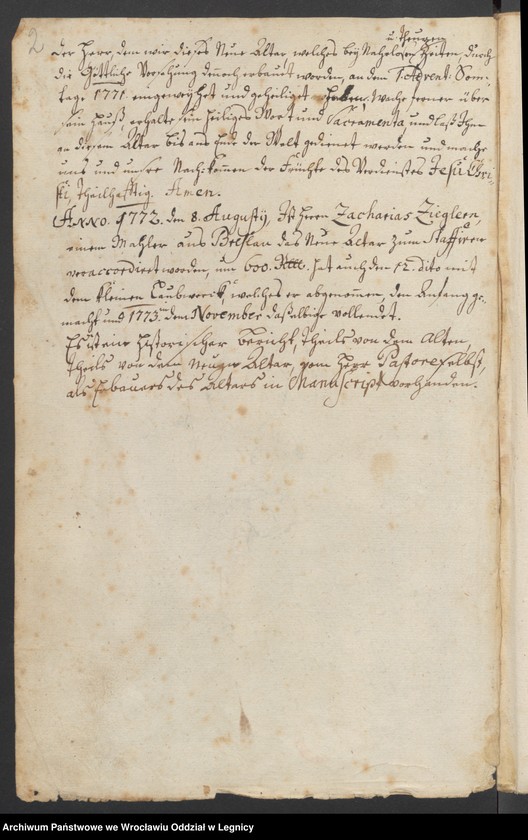 2
u. theuren
Der Herr, dem wir dieses Neue Altar welches bey Nahrlosen Zeiten, durch
die Göttliche Vorsehung dennoch erbaut worden, an dem 1. Advent: Sonn-
tage 1771 eingeweyhet und geheiliget haben, Wache ferner über
sein Hauß, erhalte sein heiliges Wort und Sacramenta und laß Ihm
an diesem Altar bis ans Ende der Welt gedienet werden und mache
uns und unsre Nachkommen der Früchte des Verdienstes Jesu Chri
sti, theilhafftig. Amen.
Anno. 1772. den 8. Augusty, Ist Herrn Zacharias Zieglern,
einem Mahler aus Breslau das Neue Altar zum Staffiren
veraccordiret worden, um 600. hat auch den 12. dito mit
dem kleinen Laubwerck, welches er abgenommen, den Anfang ge-
macht und 1773. im November daßelbige vollendet.
Es ist ein Historischer Bericht, theils von dem Alten,
theils von dem Neuen Altar, vom Herr Pastore selbst,
als Erbauers des Altars in Manuscript vorhanden.
Archiwum Państwowe we Wrocławiu Oddział w Legnicy